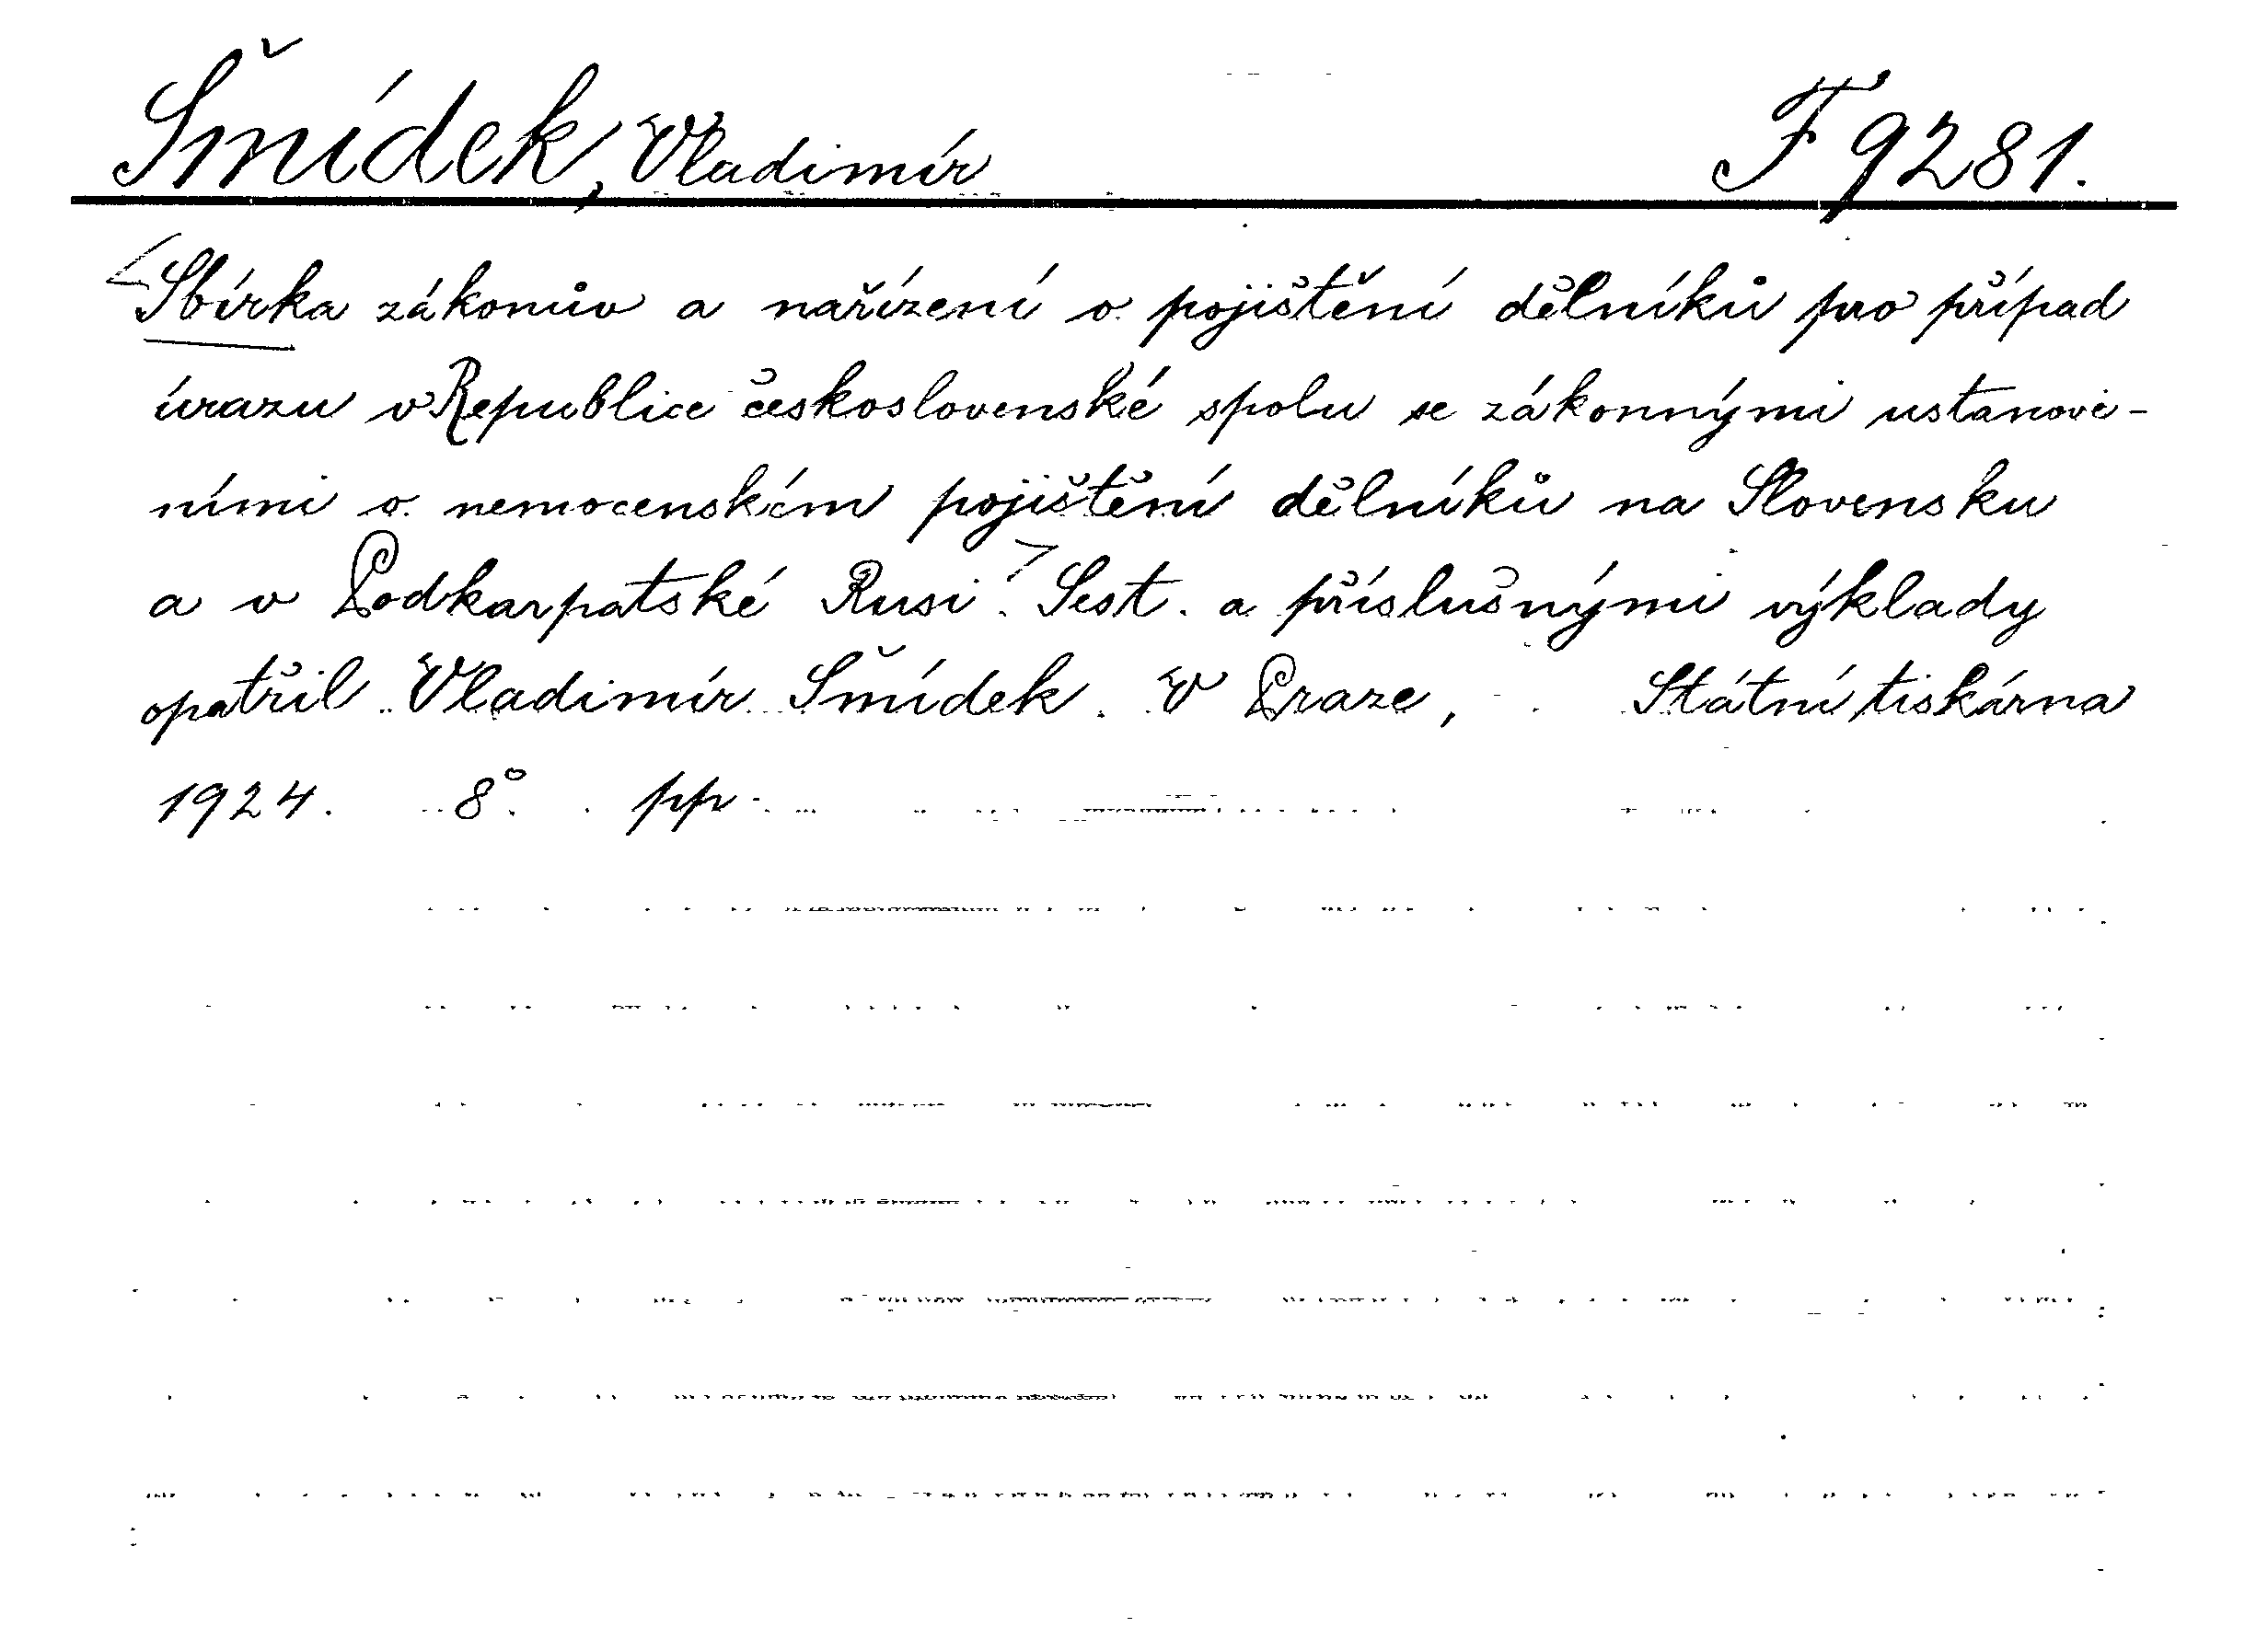 Šmídek, Vladimír F 9281.
<Sbírka zákonův a nařízení o pojištění dělníků pro případ
úrazu v Republice československé spolu se zákonnými ustanove-
ními o nemocenském pojištění dělníků na Slovensku
a v Podkarpatské Rusi.> Sest. a příslušnými výklady
opatřil Vladimír Šmídek. V Praze, Státní tiskárna
1924. 8°. pp.